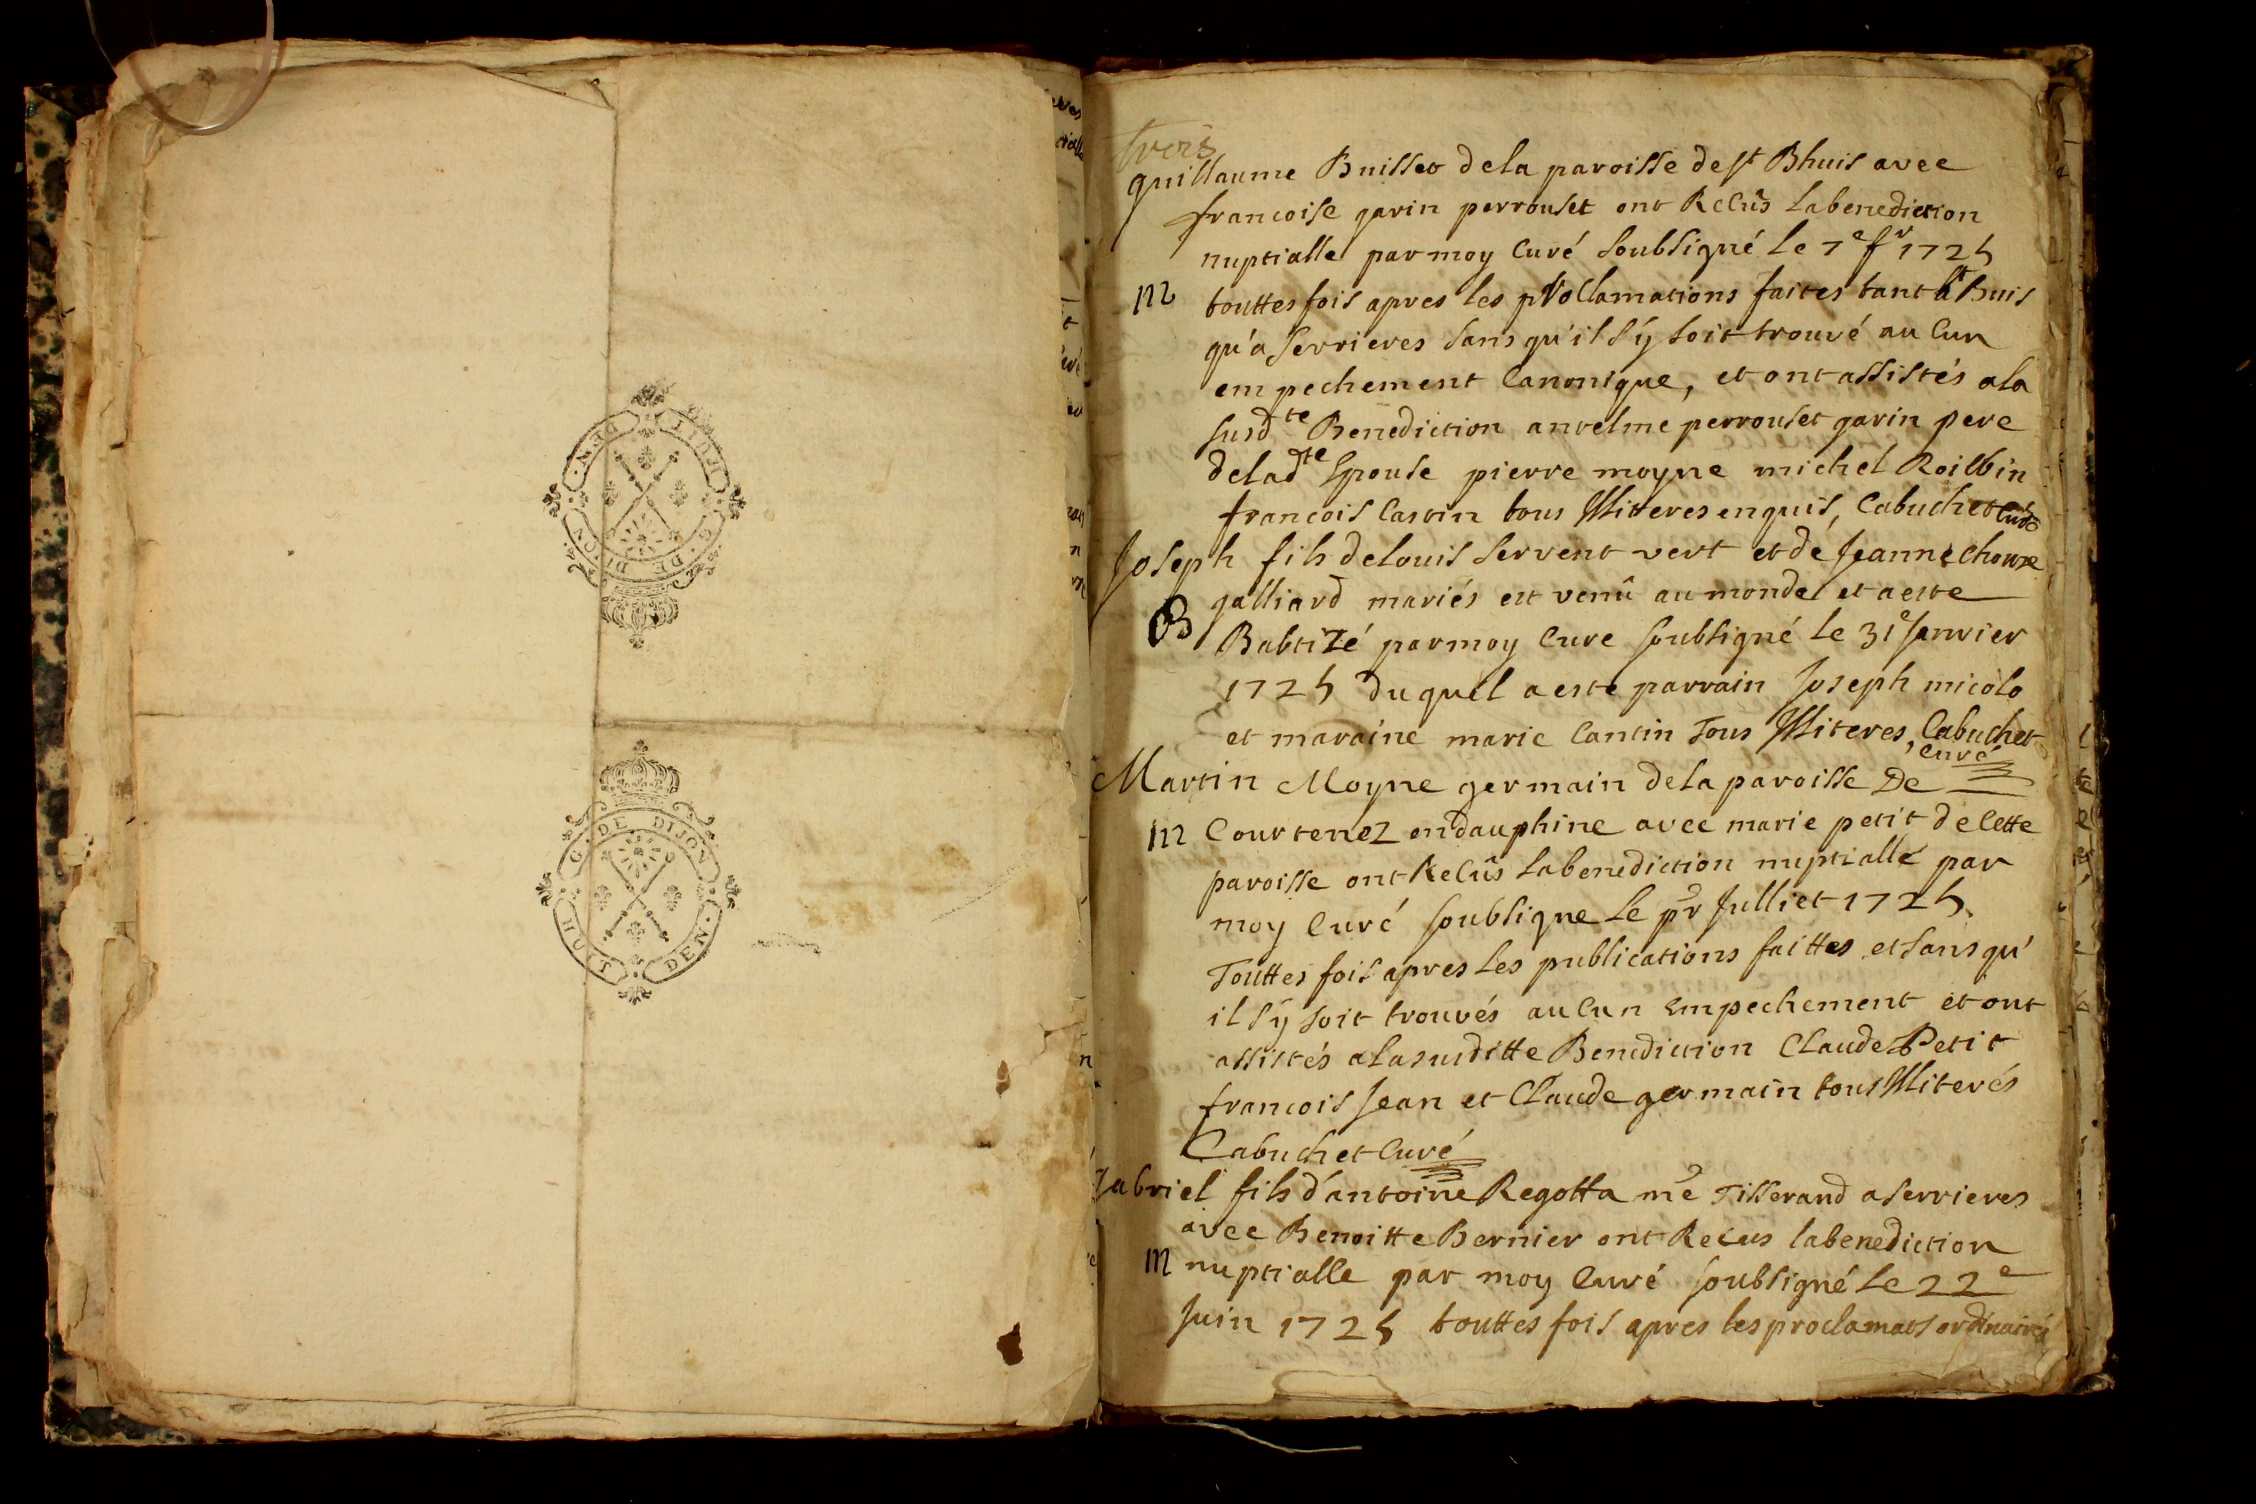 G. DE DIJON
HUIT DEN.
G. DE DIJON
HUIT DEN.
trois
guillaume Buisset dela paroisse de st Bhuis avec
francoise garin perrouset ont Recûs labenediction
nuptialle par moy Curé soubsigné le 7e fr 1725
m
touttes fois apres les proclamations faites tant a st Buis
qu'a serrieres sans qu'il s'y soit trouvé aucun
empechement Canonique, et ont assistés ala
susdte Benediction antelme perrouset garin pere
deladte Epouse pierre moyne michel Roibin
francois Cantin tous Illiteres enquis, Cabuchet Curé
Joseph fils delouis servent vert et de Jeanne
galliard mariés est venû au monde et a esté
B
Babtizé par moy Cure soubsigné le 31e Janvier
1725 duquel a esté parrain Joseph micolo
et maraine marie Cantin Tous Illiteres, Cabuchet
Curé
Martin Moyne germain dela paroisse De
m
Courtenez endauphine avec marie petit de Cette
paroisse ont Recûs labenediction nuptialle par
moy Curé soubsigne le pr Julliet 1725
Touttes fois apres les publications faittes et sans qu'
il s'y soit trouvés aucun Empechement et ont
assistés alasusditte Benediction Claude Petit
francois Jean et Claude germain tous Illiterés
Cabuchet Curé
Gabriel fils d'antoine Regotta me Tisserand a serrieres
avec Benoitte Bernier ont Recus labenediction
m
nuptialle par moy Curé soubsigné le 22e
Juin 1725 touttes fois apres les proclamaos ordinaires